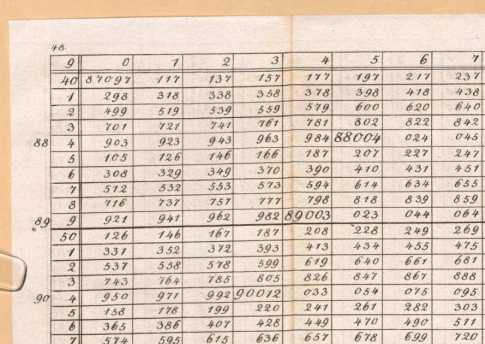 48.
9 0 1 2 3 4 5 6 7
40 87097 117 137 157 177 197 217 237
1 298 318 338 358 378 398 418 438
2 499 519 539 559 579 600 620 640
3 701 721 741 761 781 802 822 842
88 4 903 923 943 963 984 88004 024 045
5 105 126 146 166 187 207 227 247
6 308 329 349 370 390 410 431 451
7 512 532 553 573 594 614 634 655
8 716 737 757 777 798 818 839 859
89 9 921 941 962 982 89003 023 044 064
50 126 146 167 187 208 228 249 269
1 331 352 372 393 413 434 455 475
2 537 558 578 599 619 640 661 681
3 743 764 785 805 826 847 867 888
90 4 950 971 992 90012 033 054 075 095
5 158 178 199 220 241 261 282 303
6 365 386 407 428 449 470 490 511
7 574 595 615 636 657 678 699 720